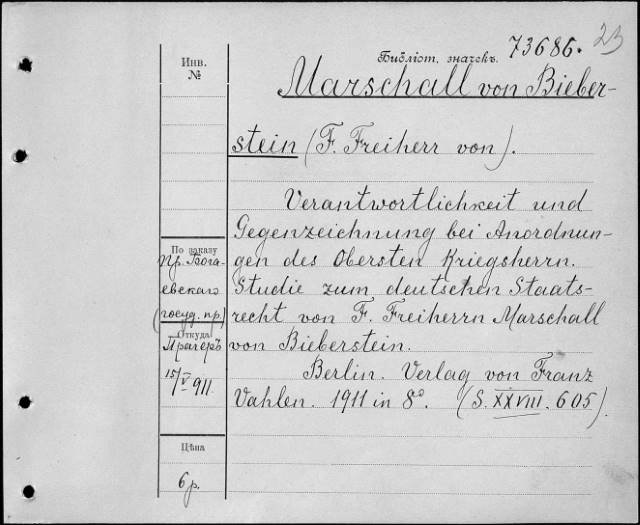 23
Библіот. значекъ. 73686.
Инв.
№
Marschall von Bieber-
stein (F. Freiherr von).
Verantwortlichkeit und
Gegenzeichnung bei Anordnun-
gen des Obersten Kriegsherrn.
Studie zum deutschen Staats-
recht von F. Freiherrn Marschall
von Bieberstein.
Berlin. Verlag von Franz
Vahlen. 1911 in 8º. (S. XXVIII. 605).
По заказу
Пр. Бога
евскаго
(госуд. пр.)
Откуда
Прагеръ
15/V 911.
Цѣна
6 р.